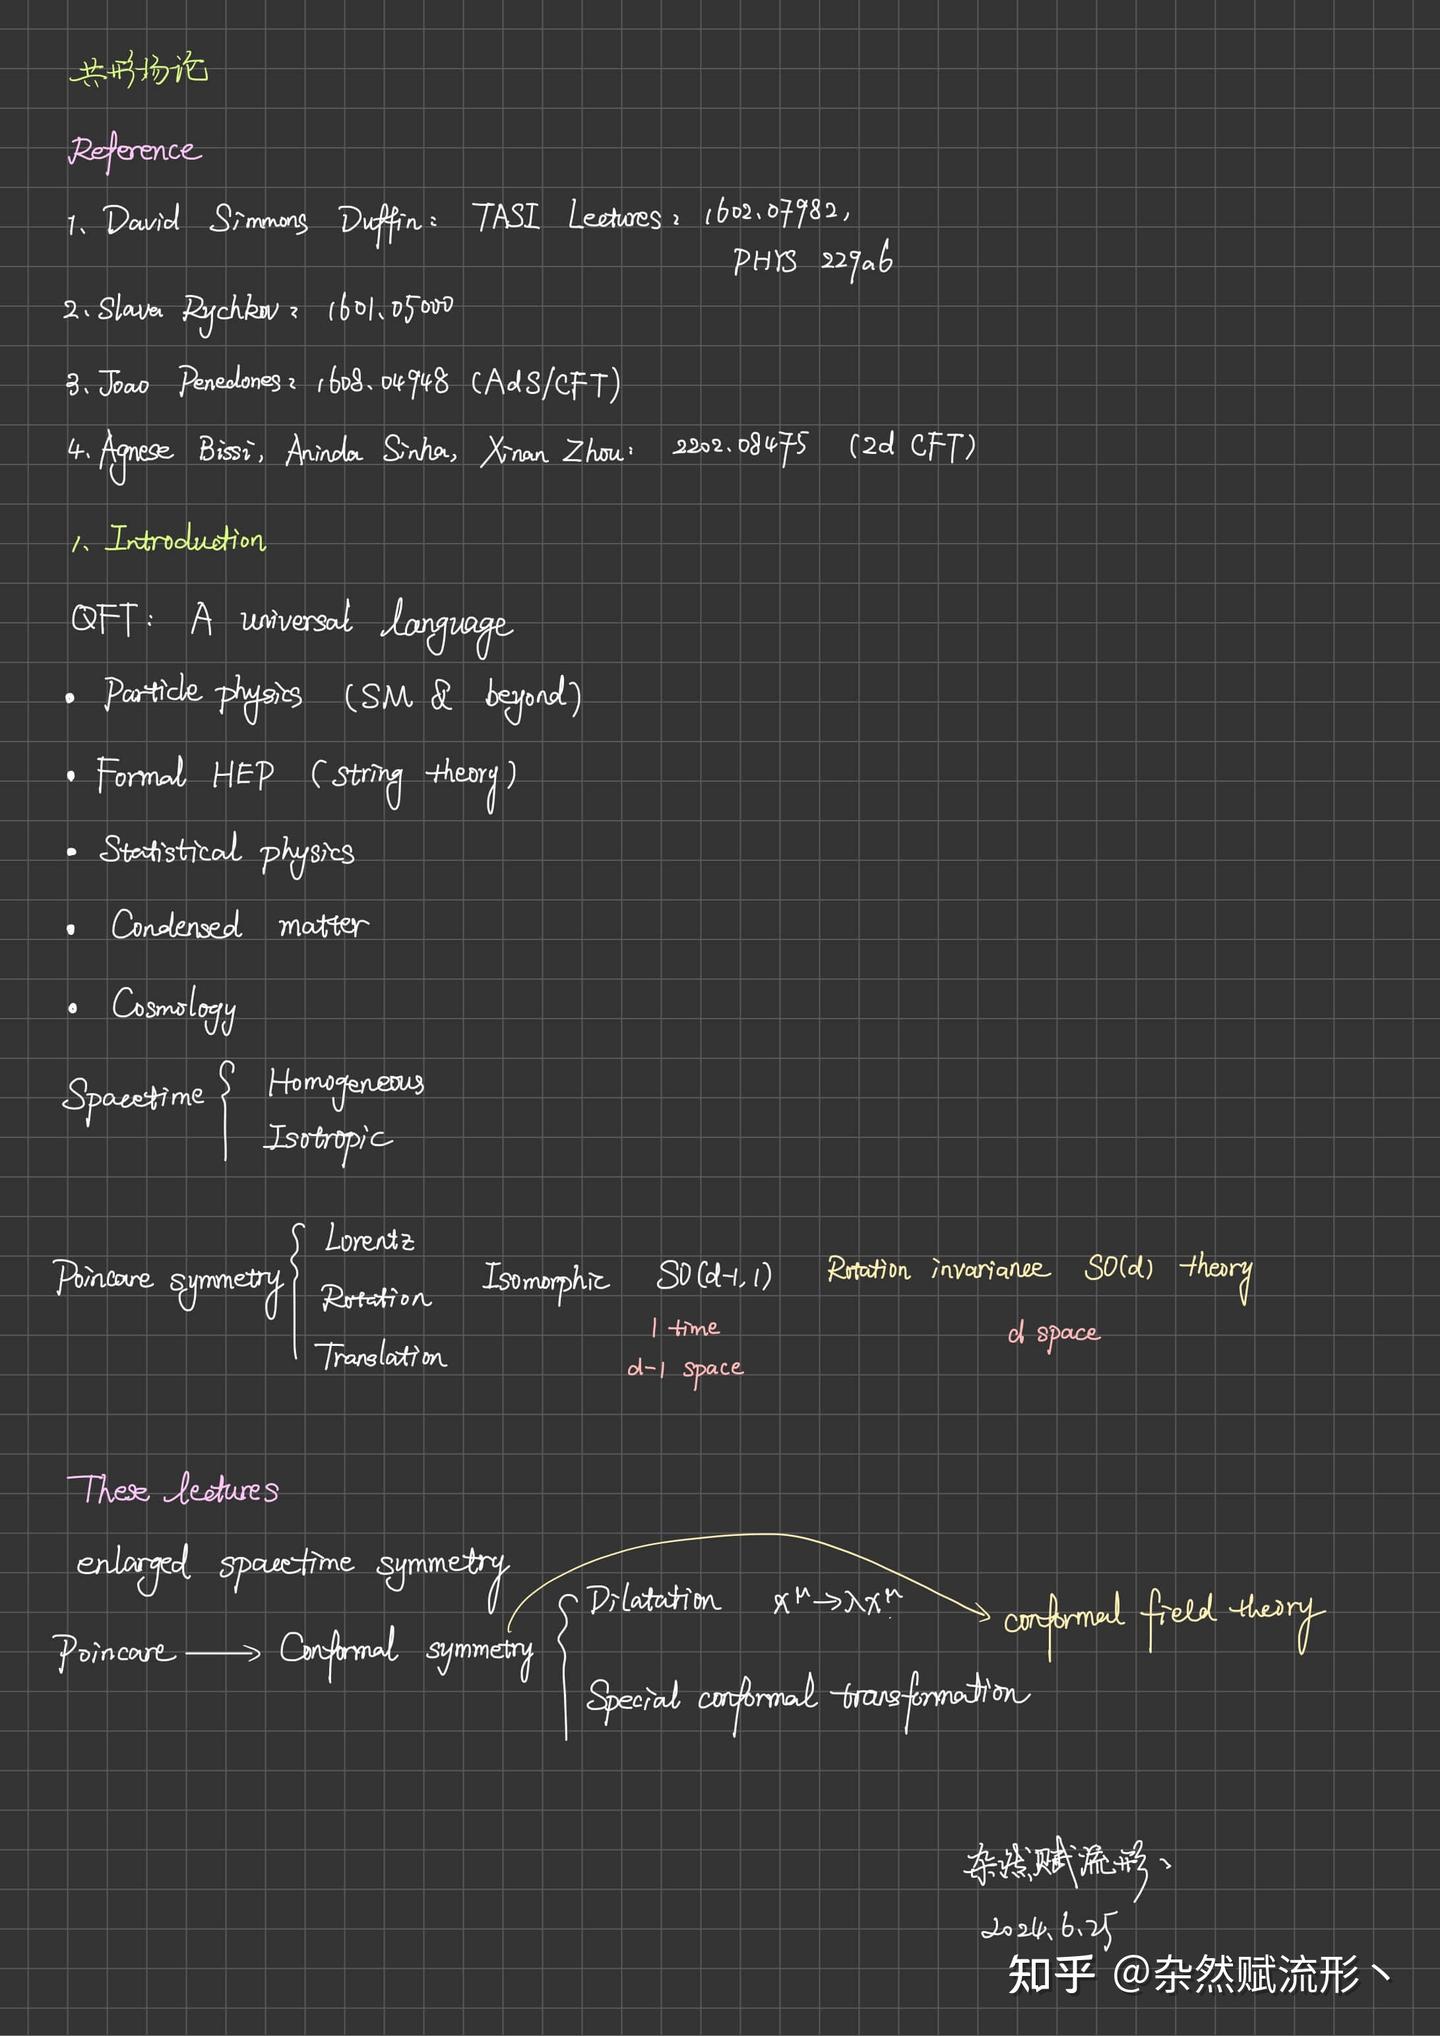 共形场论
Reference
1. David Simmons Duffin: TASI Lectures: 1602.07982,
PHYS 229ab
2. Slava Rychkov: 1601.05000
3. Joao Penedones: 1608.04948 (AdS/CFT)
4. Agnese Bissi, Aninda Sinha, Xinan Zhou: 2202.08475 (2d CFT)
1. Introduction
QFT: A universal language
• Particle physics (SM & beyond)
• Formal HEP (string theory)
• Statistical physics
• Condensed matter
• Cosmology
Spacetime { Homogeneous
Isotropic
Poincare symmetry { Lorentz
Rotation
Translation
Isomorphic SO(d-1,1) Rotation invariance SO(d) theory
1 time
d-1 space
d space
These lectures
enlarged spacetime symmetry
Poincare → Conformal symmetry { Dilatation x^μ→λx^μ
Special conformal transformation
conformal field theory
杂然赋流形丶
2024.6.25
知乎 @杂然赋流形丶